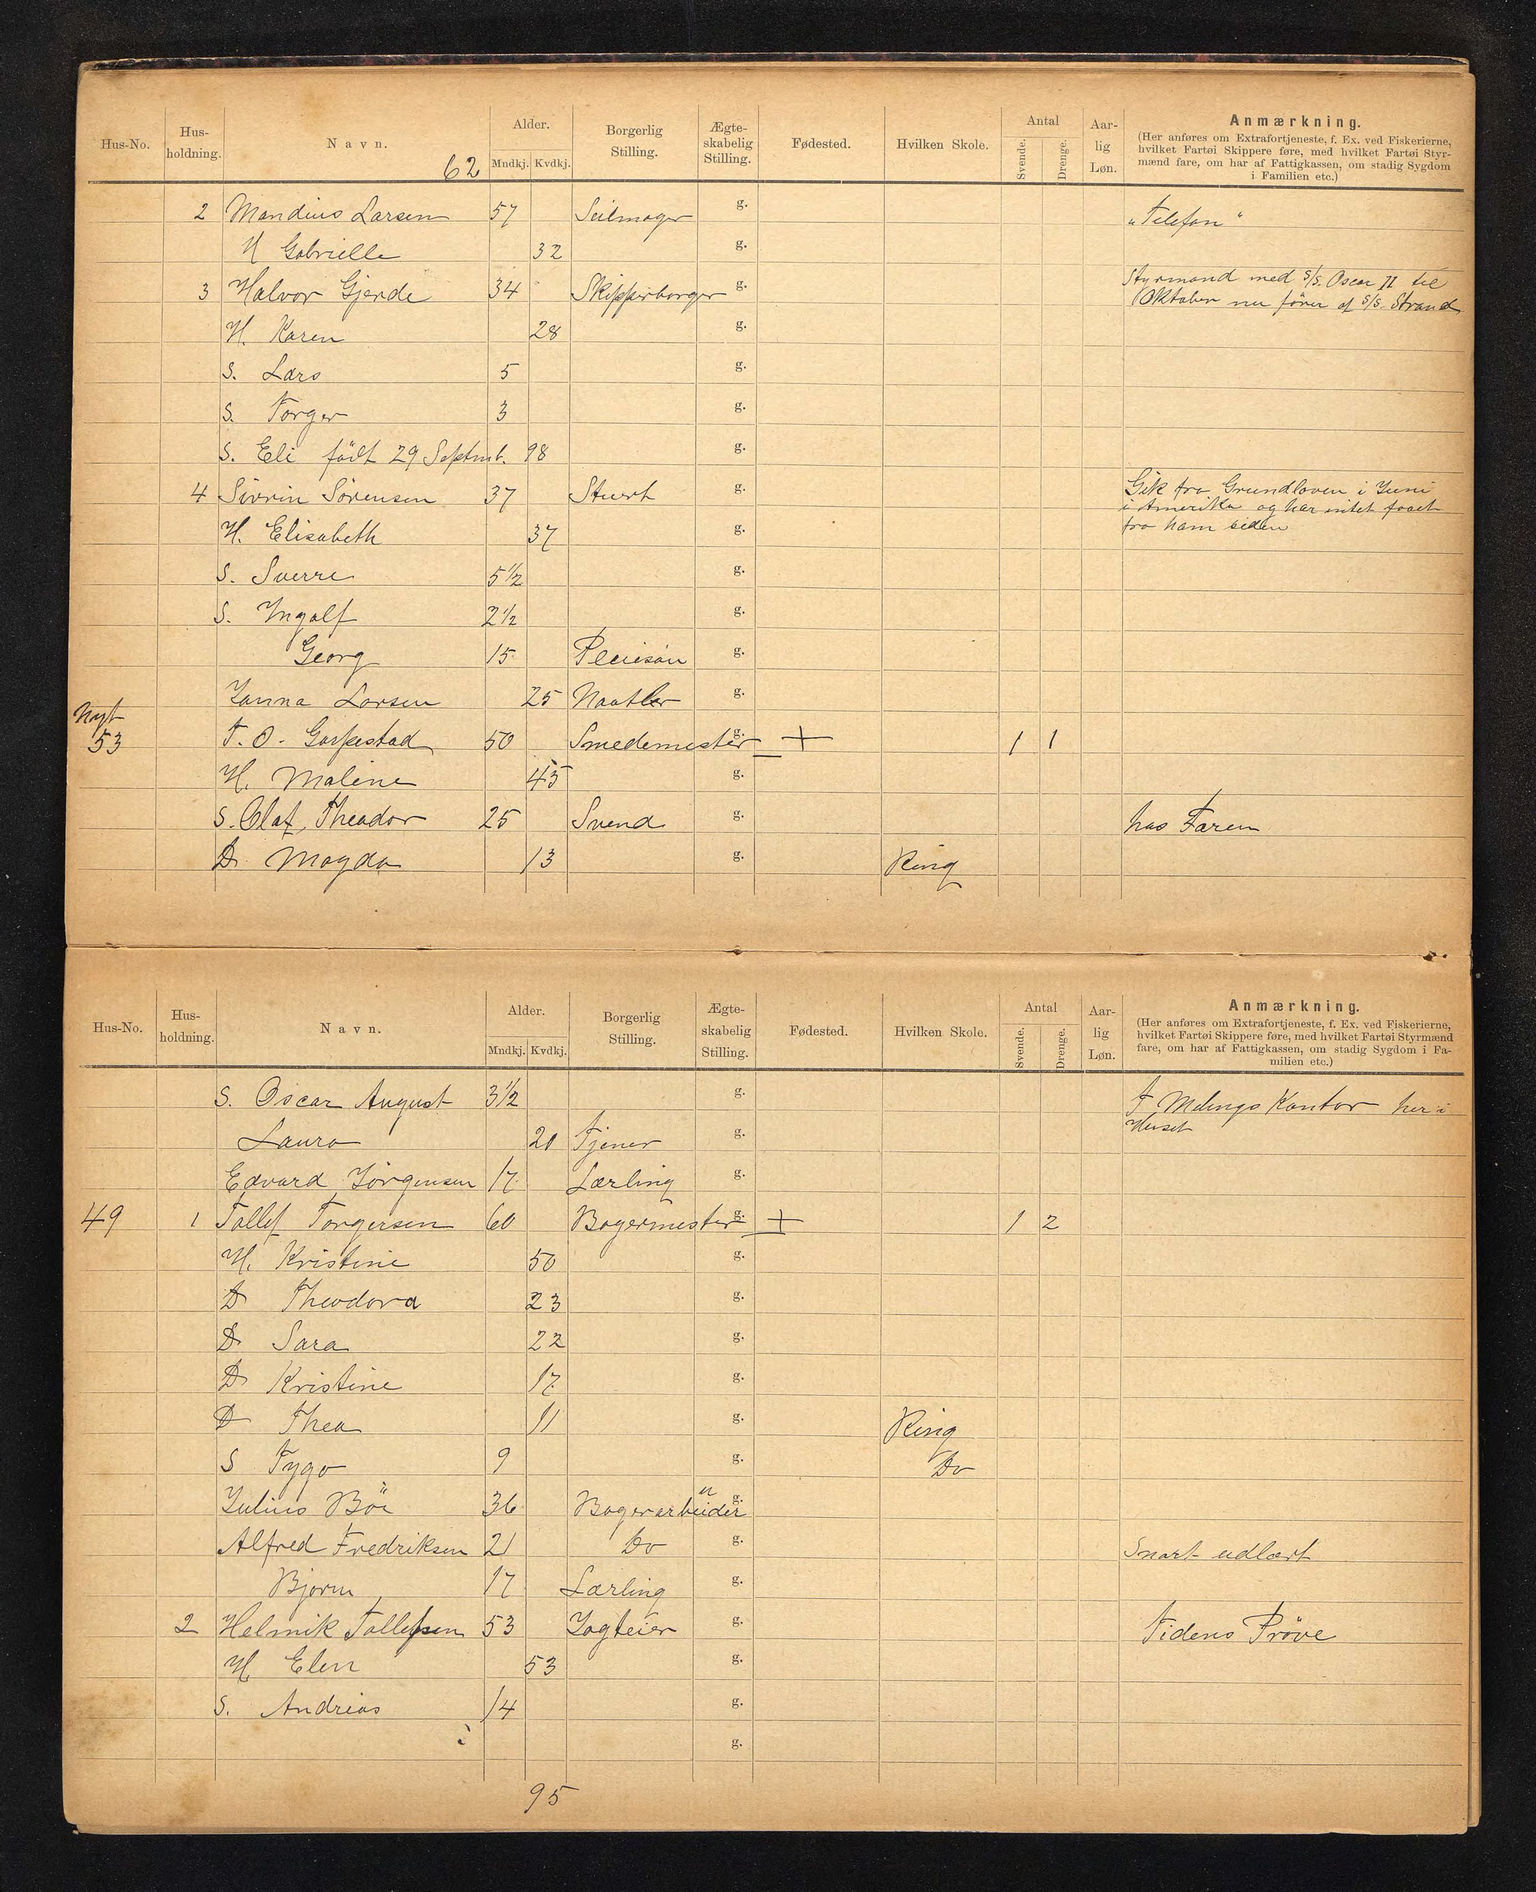 Hus-No. Hus-holdning. Navn. Alder. Mndkj. Kvdkj. Borgerlig Stilling. Ægte-skabelig Stilling. Fødested. Hvilken Skole. Antal Svende. Drenge. Aar-lig Løn. Anmærkning.
(Her anføres om Extrafortjeneste, f. Ex. ved Fiskerierne,
hvilket Fartøi Skippere føre, med hvilket Fartøi Styr-
mænd fare, om har af Fattigkassen, om stadig Sygdom
i Familien etc.)
62
2 Mandius Larsen 57 Seilmager g. "Telefon"
H Gabrielle 32 g.
3 Halvor Gjerde 34 Skipperborger g. Styrmand med S/S. Oscar II til
Oktober nu fører af S/S. Strand
H. Karen 28 g.
S. Lars 5 g.
S. Torger 3 g.
S. Eli födt 29 Septmb. 98 g.
4 Sörin Sörensen 37 Stuert g. Gik fra Grundloven i Juni
i Amerika og har intet faaet
fra ham siden
H. Elisabeth 37 g.
S. Sverre 5 1/2 g.
S. Ingolf 2 1/2 g.
Georg 15 Pleiesön g.
Janna Larsen 25 g.
Nyt
53 T. O. Garpestad 50 Smedemester g. + 1 1
H. Maline 45 g.
S. Olaf Theador 25 Svend g. hos Faren
D. Magda 13 g. Ring
Hus-No. Hus-holdning. Navn. Alder. Mndkj. Kvdkj. Borgerlig Stilling. Ægte-skabelig Stilling. Fødested. Hvilken Skole. Antal Svende. Drenge. Aar-lig Løn. Anmærkning.
(Her anføres om Extrafortjeneste, f. Ex. ved Fiskerierne,
hvilket Fartøi Skippere føre, med hvilket Fartøi Styrmænd
fare, om har af Fattigkassen, om stadig Sygdom i Fa-
milien etc.)
S. Oscar August 3 1/2 g. Kontor her i
Huset
Laura 20 Tjener g.
Edvard Jörgensen 17 Lærling g.
49 1 Tollef Torgersen 60 Bagermester g. + 1 2
H. Kristine 50 g.
D Theodora 23 g.
D Sara 22 g.
D Kristine 17 g.
D Thea 11 g. Ring
S Tygo 9 g. Do
Julius Böe 36 Bagerarbeider g.
Alfred Fredriksen 21 Do g. Snart udlært
Bjorn 17 Lærling g.
2 Helmik Tollefsen 53 Jagteier g. Tidens Pröve
H Elen 53 g.
S. Andreas 14 g.
g.
95